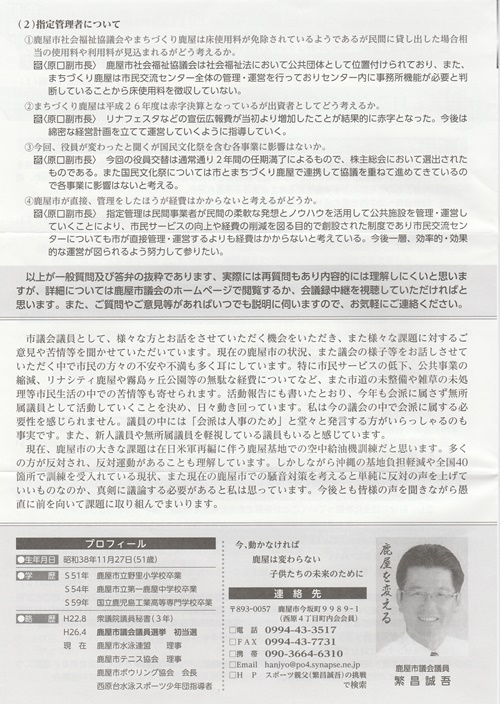 (2)指定管理者について
①鹿屋市社会福祉協議会やまちづくり鹿屋は床使用料が免除されているようであるが民間に貸し出した場合相
当の使用料や利料が見込まれるがどう考えるか。
答(原口副市長) 鹿屋市社会福祉協議会は社会福祉法において公共団体として位置付けられており、また、
まちづくり鹿屋は市民交流センター全体の管理・運営を行っておりセンター内に事務所機能が必要と判
断していることから床使用料を徴収していない。
②まちづくり鹿屋は平成26年度は赤字決算となっているが出資者としてどう考えるか。
答(原口副市長) リナフェスタなどの宣伝広報費が当初より増加したことが結果的に赤字となった。今後は
綿密な経営計画を立てて運営していくように指導していく。
③今回、役員が変わったと聞くが国民文化祭を含む各事業に影響はないか。
答(原口副市長) 今回の役員交替は通常通り2年間の任期満了によるもので、株主総会において選出された
ものである。また国民文化祭については市とまちづくり鹿屋で連携して協議を重ねて進めてきているの
で各事業に影響はないと考える。
④鹿屋市が直接、管理をしたほうが経費はかからないと考えるがどうか。
答(原口副市長) 指定管理は民間事業者が民間の柔軟な発想とノウハウを活用して公共施設を管理・運営し
ていくことにより、市民サービスの向上や経費の削減を図る目的で創設された制度であり市民交流セン
ターについても市が直接管理・運営するよりも経費はかからないと考えている。今後一層、効率的・効果
的な運営が図られるよう努力して参りたい。
以上が一般質問及び答弁の抜粋であります、実際には再質問もあり内容的には理解しにくいと思いま
すが、詳細については鹿屋市議会のホームページで閲覧するか、会議録中継を視聴していただければと
思います。また、ご質問やご意見等があればいつでも説明に伺いますので、お気軽にご連絡ください。
市議会議員として、様々な方とお話をさせていただく機会をいただき、また様々な課題に対するご
意見や苦情等を聞かせていただいています。現在の鹿屋市の状況、また議会の様子等をお話しさせて
いただく中で市民の方々の不安や不満も多く耳にしています。特に市民サービスの低下、公共事業の
縮減、リナシティ鹿屋や霧島ヶ丘公園等の無駄な経費についてなど、また市道の未整備や雑草の未処
理等市民生活の中での苦情等も寄せられます。活動報告にも書いたとおり、今年も会派に属さず無所
属議員として活動していくことを決め、日々動き回っています。私は今の議会の中で会派に属する必
要性を感じられません。議員の中には「会派は人事のため」と堂々と発言する方がいらっしゃるのも
事実です。また、新人議員や無所属議員を軽視している議員もいると感じています。
現在、鹿屋市の大きな課題は在日米軍再編に伴う鹿屋基地での空中給油機訓練だと思います。多く
の方が反対され、反対運動があることも理解しています。しかしながら沖縄の基地負担軽減や全国40
箇所で訓練を受入れている現状、また現在の鹿屋市での騒音対策を考えると単純に反対の声を上げて
いいものなのか、真剣に議論する必要があると私は思っています。今後とも皆様の声を聞きながら愚
直に前を向いて課題に取り組んでまいります。
プロフィール
●生年月日 昭和38年11月27日(51歳)
●学 歴 S51年 鹿屋市立野里小学校卒業
S54年 鹿屋市立第一鹿屋中学校卒業
S59年 国立鹿児島工業高等専門学校卒業
●略 歴 H22.8 衆議院議員秘書(3年)
H26.4 鹿屋市議会議員選挙 初当選
現 在 鹿屋市水泳連盟 理事
鹿屋市テニス協会 理事
鹿屋市ボウリング協会 会長
西原台水泳スポーツ少年団指導者
今、動かなければ
鹿屋は変わらない
子供たちの未来のために
連 絡 先
〒893-0057 鹿屋市今坂町9989-1
(西原4丁目町内会会員)
□電 話 0994-43-3517
□FAX 0994-43-7731
□携 帯 090-3664-6310
□Email hanjyo@po4.synapse.ne.jp
□H P スポーツ親父(繁昌誠吾)の挑戦
で検索
鹿屋を変える
鹿屋市議会議員
繁昌誠吾